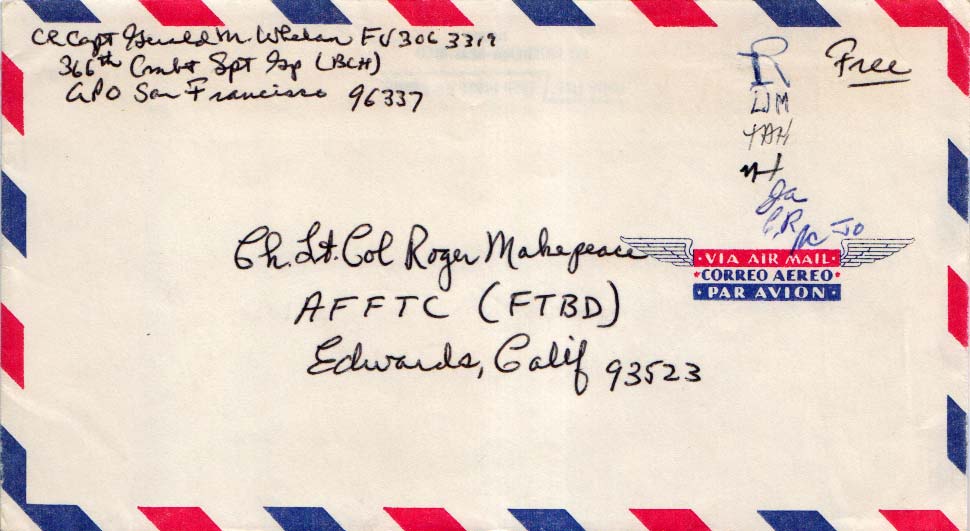 Ch Capt Gerald M. Whelan FV306 3319
366th Combt Spt Gp (BCH)
APO San Francisco 96337
Free
R
WM
TAH
Ja
CR
JO
Ch. Lt. Col Roger Makepeace
AFFTC (FTBD)
Edwards, Calif 93523
· VIA AIR MAIL ·
* CORREO AEREO *
· PAR AVION ·